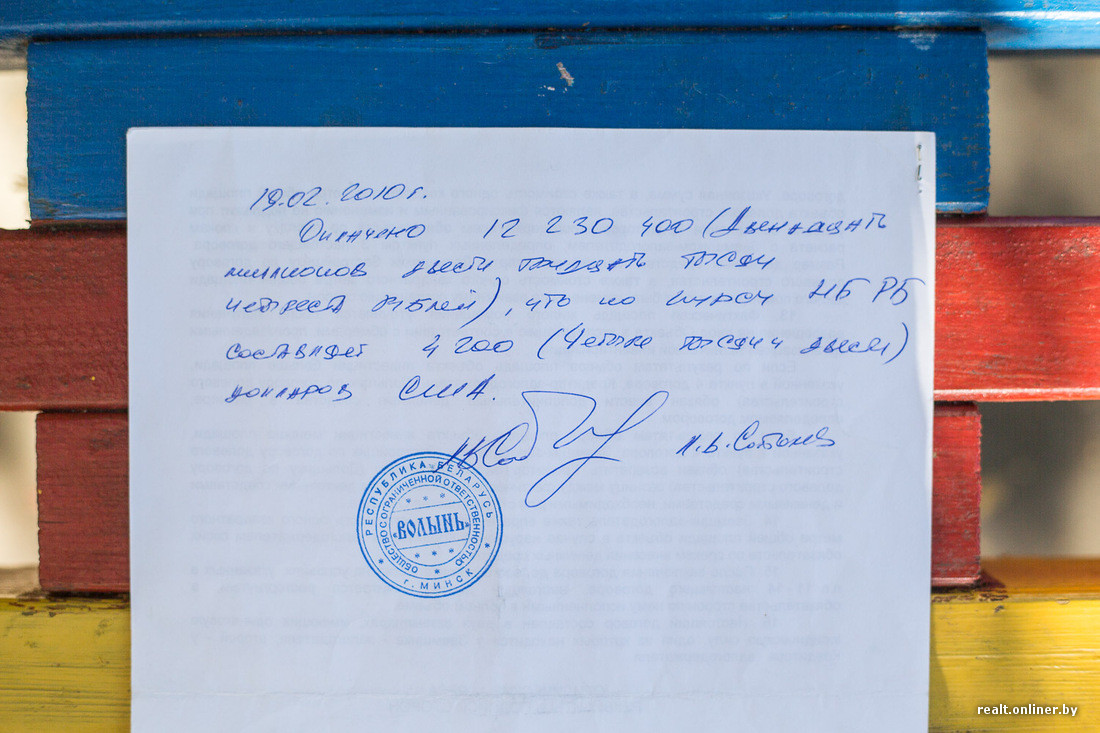 19.02.2010 г.
Оплачено 12 230 400 (Двенадцать
миллионов двести тридцать тысяч
четыреста рублей), что по курсу НБ РБ
составляет 4 200 (Четыре тысячи двести)
долларов США.
РЕСПУБЛИКА БЕЛАРУСЬ
ОБЩЕСТВО С ОГРАНИЧЕННОЙ ОТВЕТСТВЕННОСТЬЮ
«ВОЛЫНЬ»
г. МИНСК
realt.onliner.by